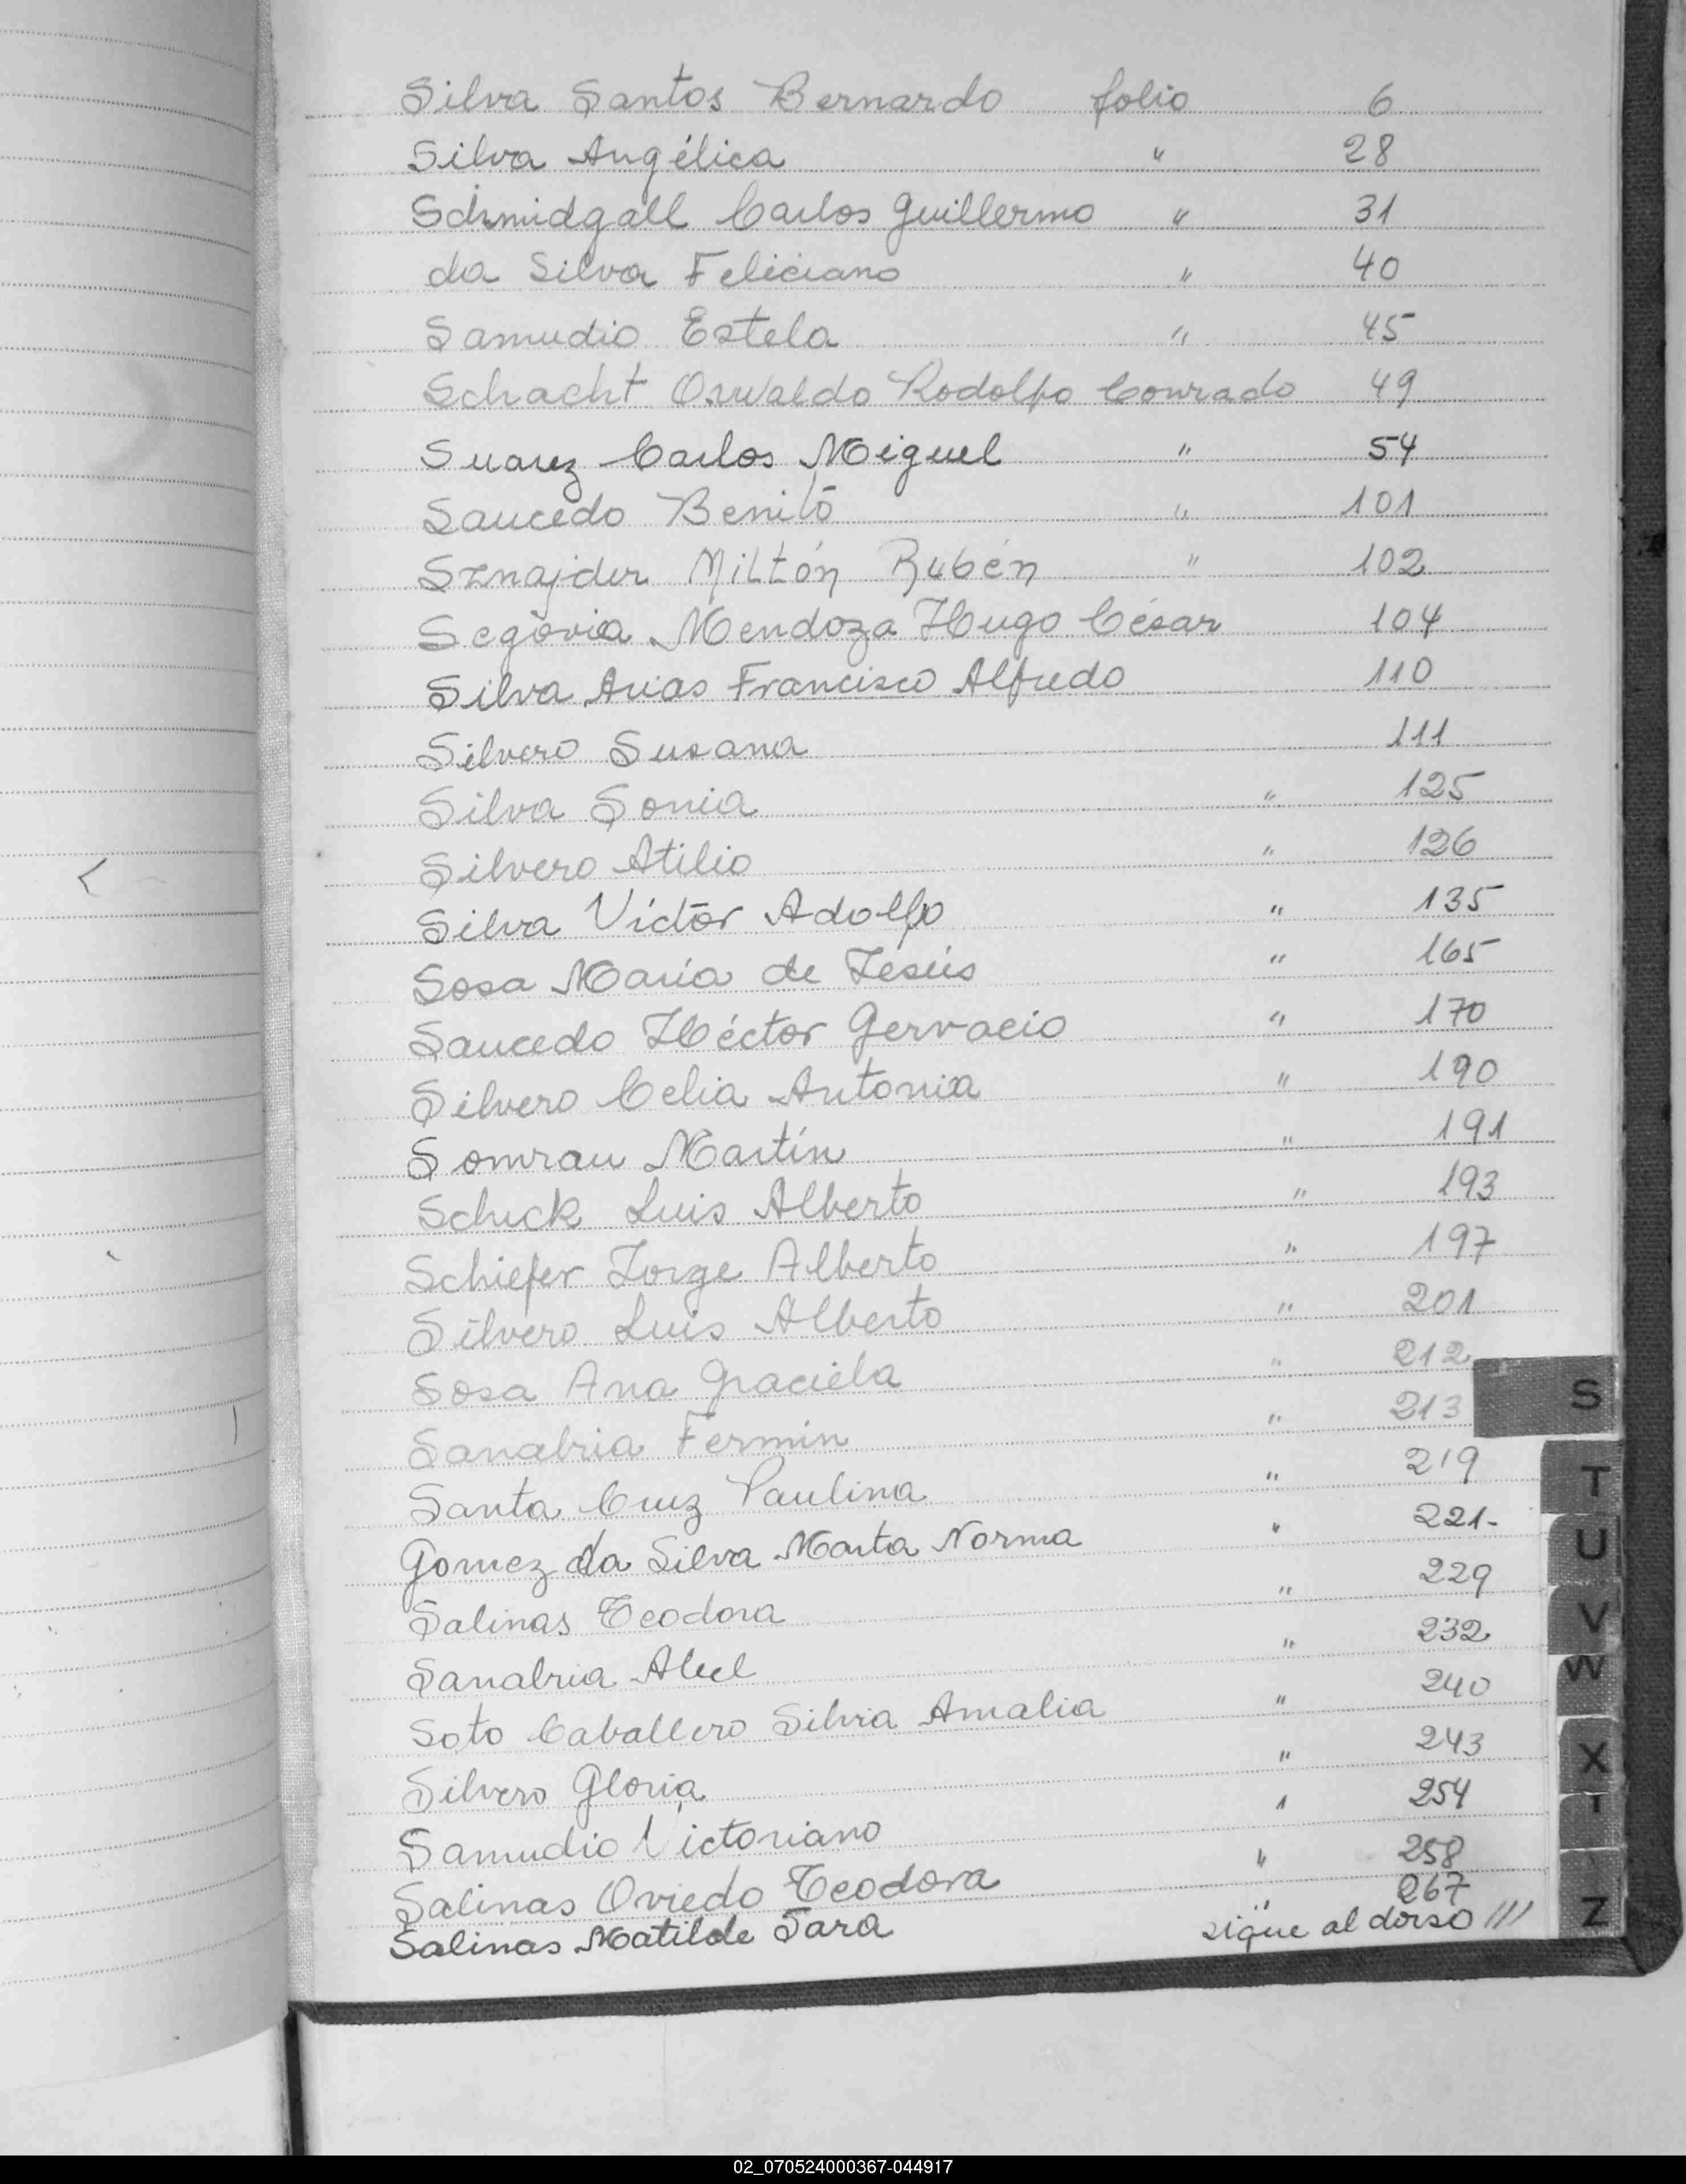 Silva Santos Bernardo folio 6
Silva Angélica " 28
Schmidgall Carlos Guillermo " 31
da Silva Feliciano " 40
Samudio Estela " 45
Schacht Oswaldo Rodolfo Conrado 49
Suarez Carlos Miguel " 54
Saucedo Benito " 101
Sznajder Miltón Rubén " 102
Segovia Mendoza Hugo César 104
Silva Arias Francisco Alfredo 110
Silvero Susana 111
Silva Sonia " 125
Silvero Atilio " 126
Silva Víctor Adolfo " 135
Sosa María de Jesús " 165
Saucedo Héctor Gervacio " 170
Silvero Celia Antonia " 190
Somrau Martín " 191
Schick Luis Alberto " 193
Schiefer Jorge Alberto " 197
Silvero Luis Alberto " 201
Sosa Ana Graciela " 212
Sanabria Fermín " 213
Santa Cruz Paulina " 219
Gomez da Silva Marta Norma " 221-
Salinas Teodora " 229
Sanabria Abel " 232
Soto Caballero Silvia Amalia " 240
Silvero Gloria " 243
Samudio Victoriano " 254
Salinas Oviedo Teodora " 258
Salinas Matilde Sara " 267
sigue al dorso ///
S
T
U
V
W
X
Z
02_070524000367-044917